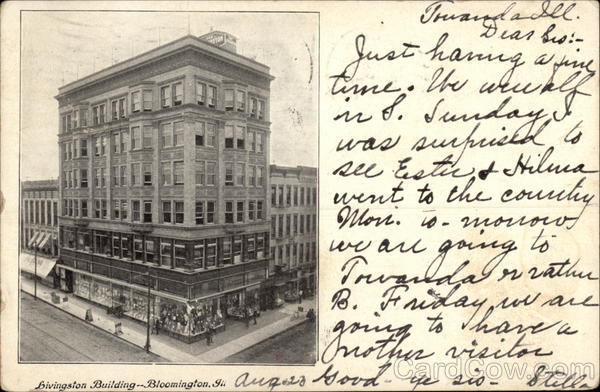 Towanda Ill.
Dear Sis:-
Just having a fine
time. We were all
in S. Sunday, I
was surprised to
see Ester & Hilma
went to the country
Mon. to-morrow
we are going to
Towanda or rather
B. Friday we are
going to have a
nother visitor
Good- sis- Stella
Aug 23
Livingston Building--Bloomington, Ill
CardCow.com